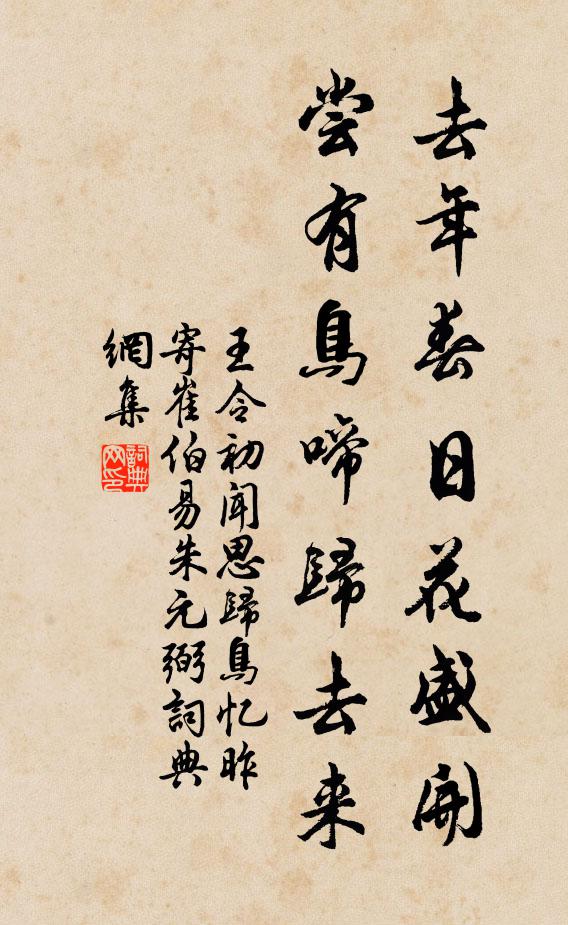 去年春日花盛開
尝有鳥啼歸去来
王令初闻思歸鳥忆昨
寄崔伯易朱元弼詞典
網集
詞典
网印